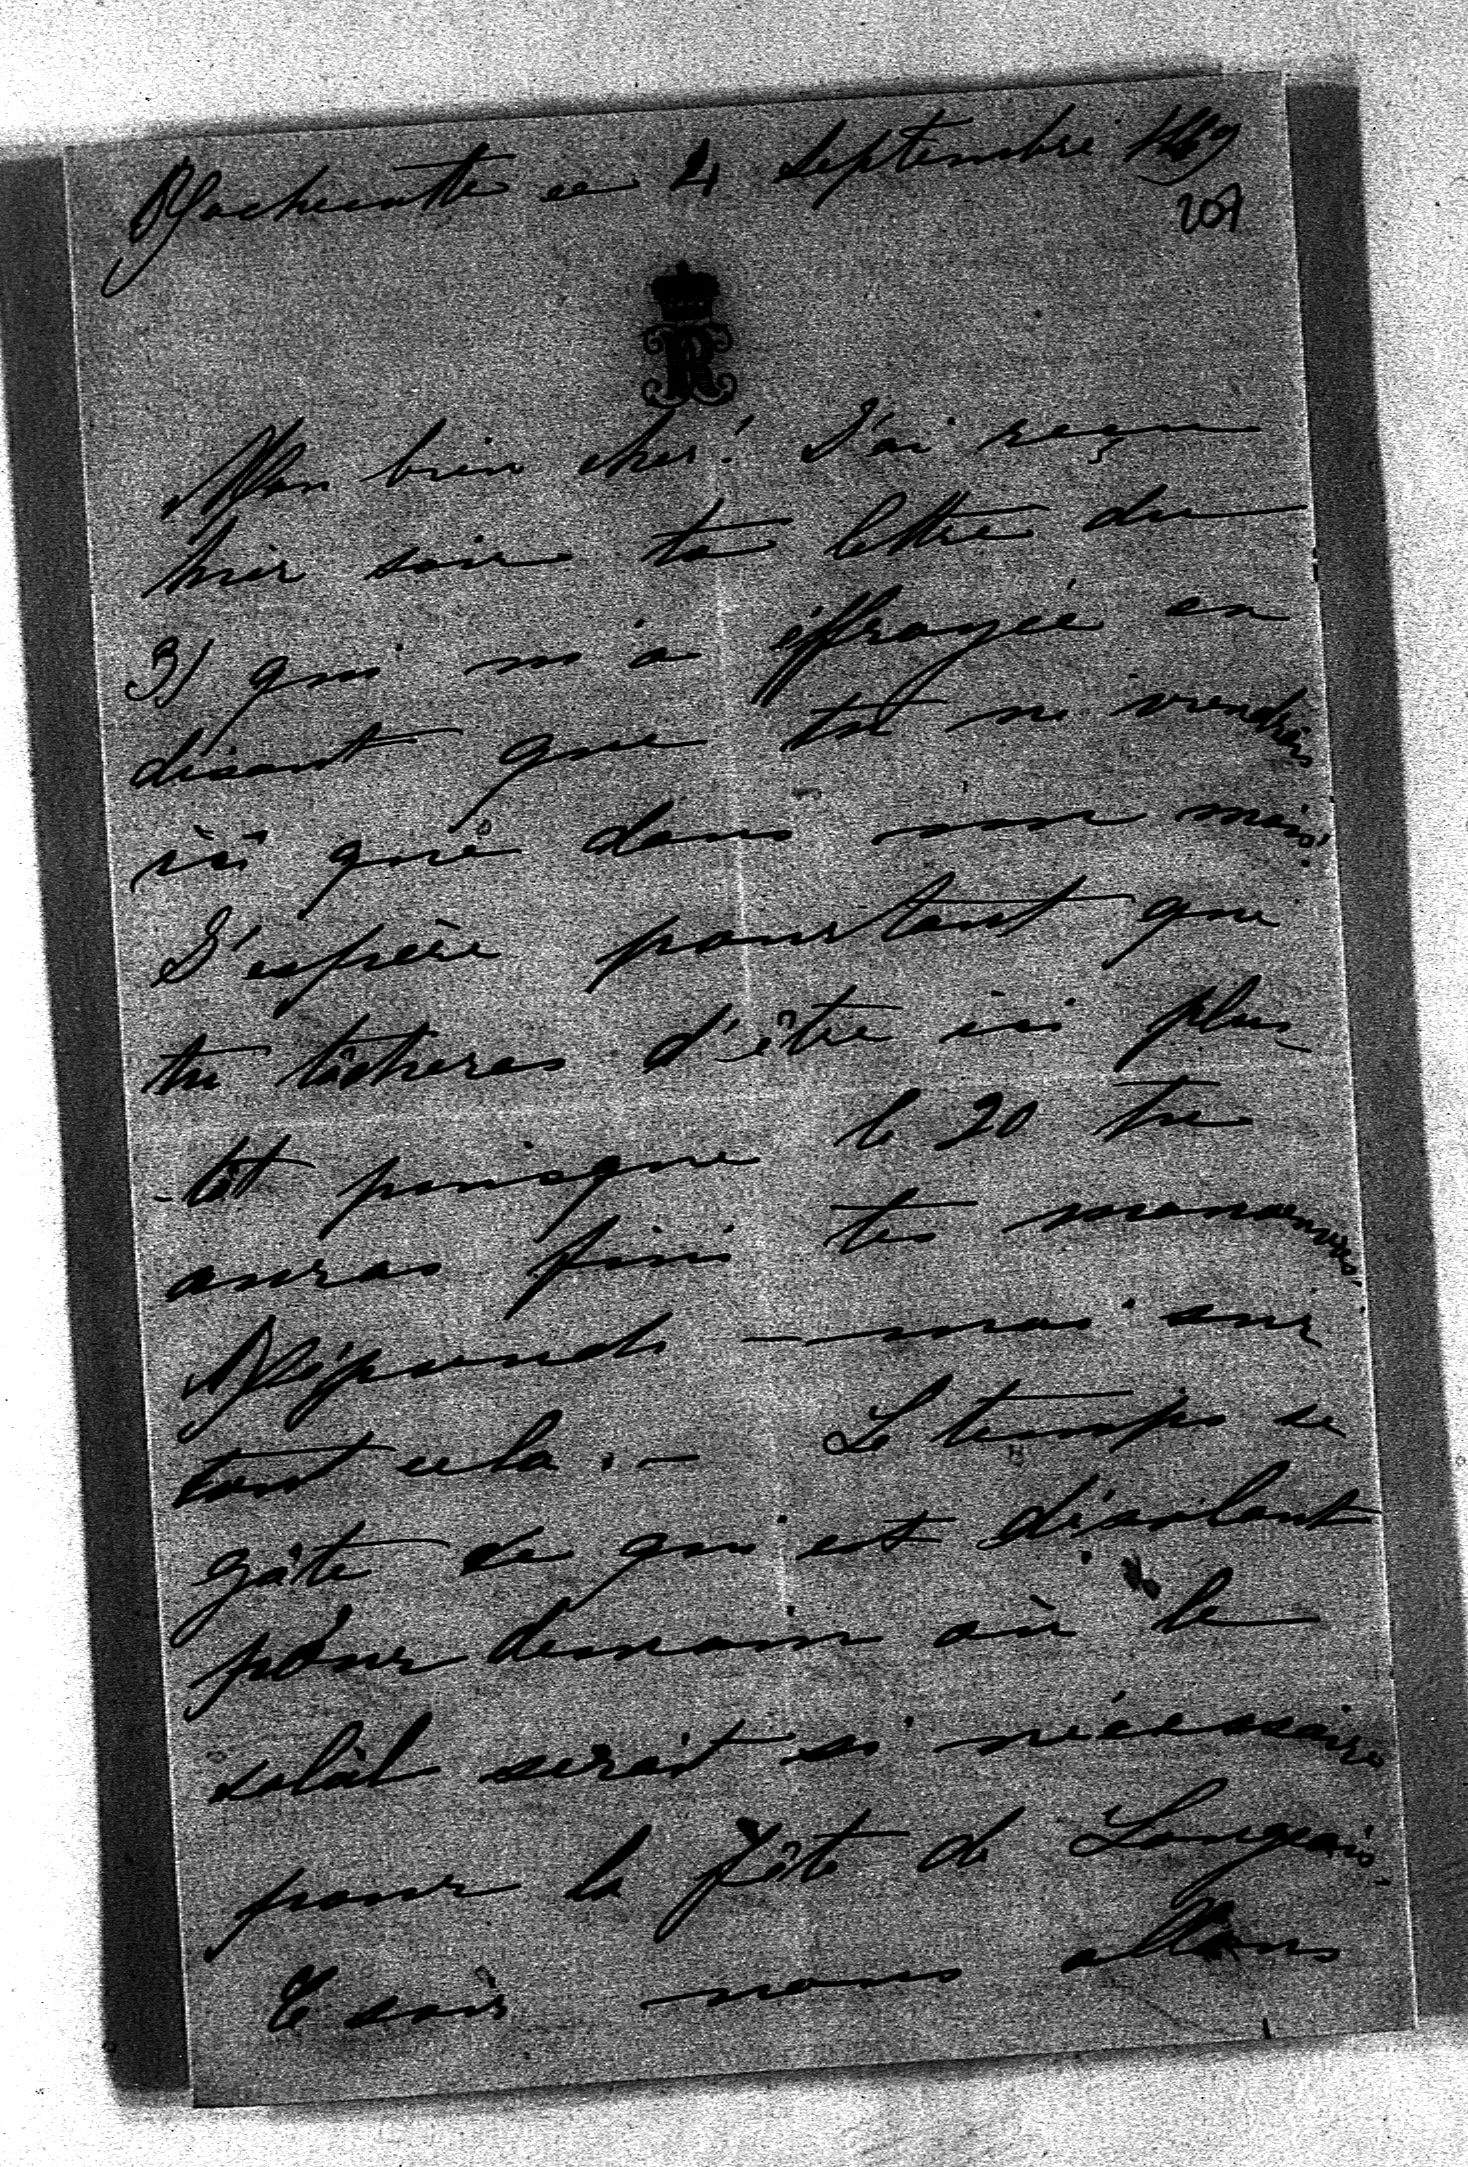 Rochecotte ce 4 Septembre 1869
207
R
Mon bien cher! J'ai reçu
hier soir ta lettre du
31 qui m'a éffrayée en
disant que tu ne viendrais
ici que dans mois.
J'espère pourtant que
tu tâcheras d'être ici plus
-tôt puisque le 20 tu
auras fini tes manoeuvres.
Réponds-moi sur
tout cela. – Le temps se
gâte ce qui est désolant
pour demain où le
soleil serait si nécessaire
pour la fête de Langeais.
Ce soir nous allons